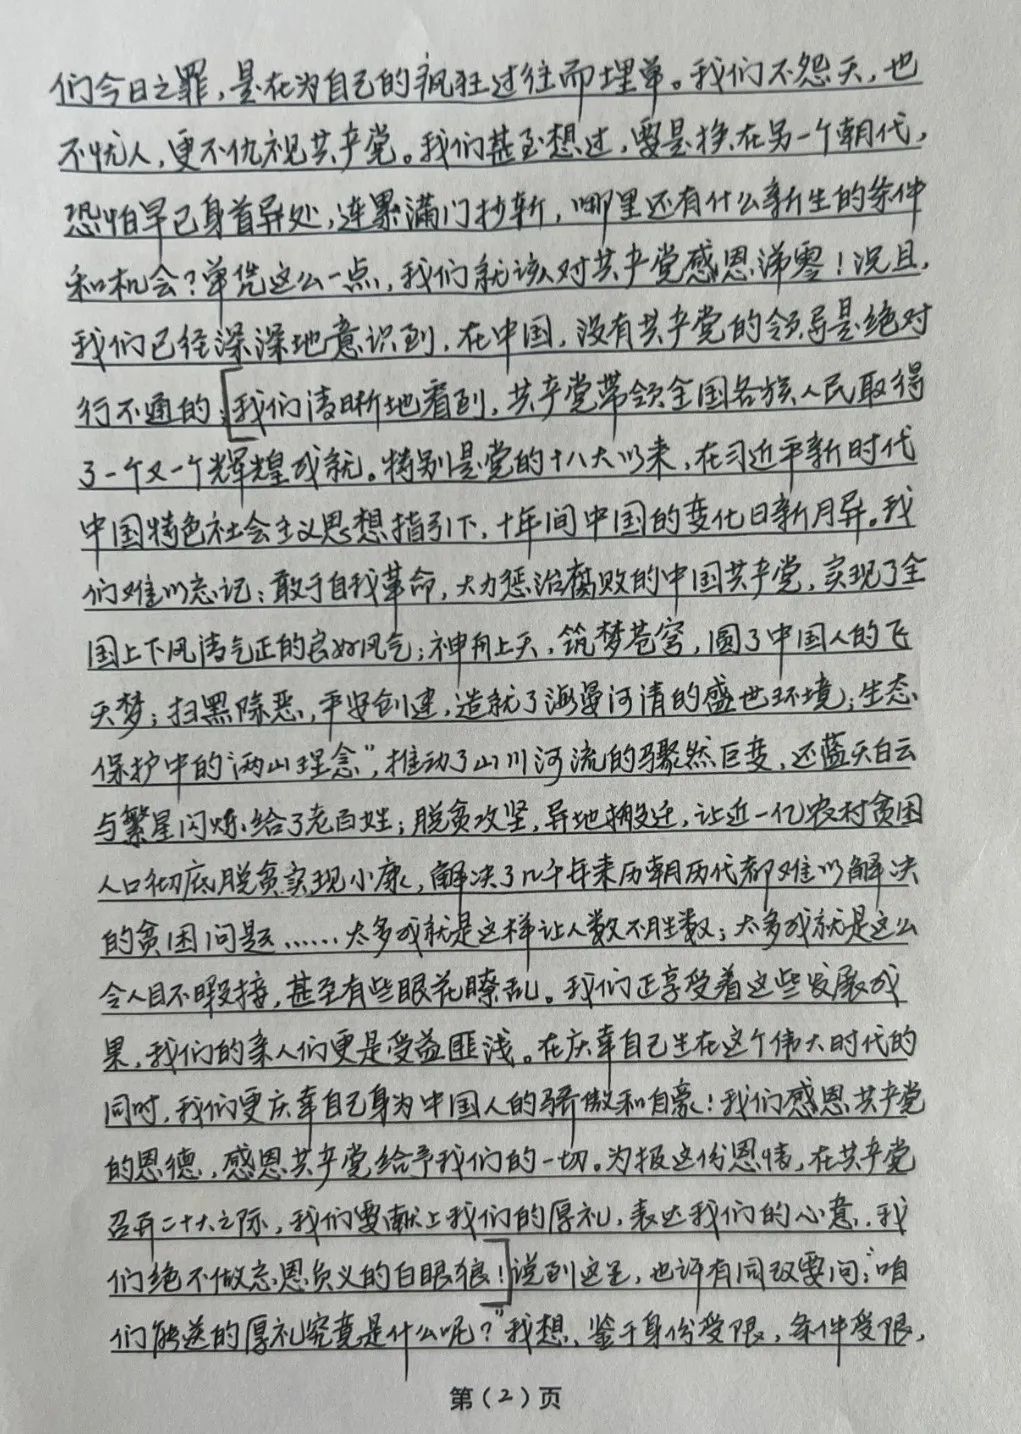 们今日之罪，是在为自己的疯狂过往而埋单。我们不怨天，也
不忧人，更不仇视共产党。我们甚至想过，要是换在另一个朝代，
恐怕早已身首异处，连累满门抄斩，哪里还有什么新生的条件
和机会？单凭这么一点，我们就该对共产党感恩涕零！况且，
我们已经深深地意识到，在中国，没有共产党的领导是绝对
行不通的：[我们清晰地看到，共产党带领全国各族人民取得
了一个又一个辉煌成就。特别是党的十八大以来，在习近平新时代
中国特色社会主义思想指引下，十年间中国的变化日新月异。我
们难以忘记：敢于自我革命，大力惩治腐败的中国共产党，实现了全
国上下风清气正的良好风气；神舟上天，筑梦苍穹，圆了中国人的飞
天梦；扫黑除恶，平安创建，造就了海晏河清的盛世环境；生态
保护中的"两山理念"，推动了山川河流的骤然巨变，还蓝天白云
与繁星闪烁给了老百姓；脱贫攻坚，异地搬迁，让近一亿农村贫困
人口彻底脱贫实现小康，解决了几千年来历朝历代都难以解决
的贫困问题……太多成就是这样让人数不胜数；太多成就是这么
令人目不暇接，甚至有些眼花瞭乱。我们正享受着这些发展成
果，我们的亲人们更是受益匪浅。在庆幸自己生在这个伟大时代的
同时，我们更庆幸自己身为中国人的骄傲和自豪！我们感恩共产党
的恩德，感恩共产党给予我们的一切。为报这份恩情，在共产党
召开二十大之际，我们要献上我们的厚礼，表达我们的心意，我
们绝不做忘恩负义的白眼狼！]说到这里，也许有同改要问："咱
们能送的厚礼究竟是什么呢？"我想，鉴于身份受限，条件受限，
第（2）页